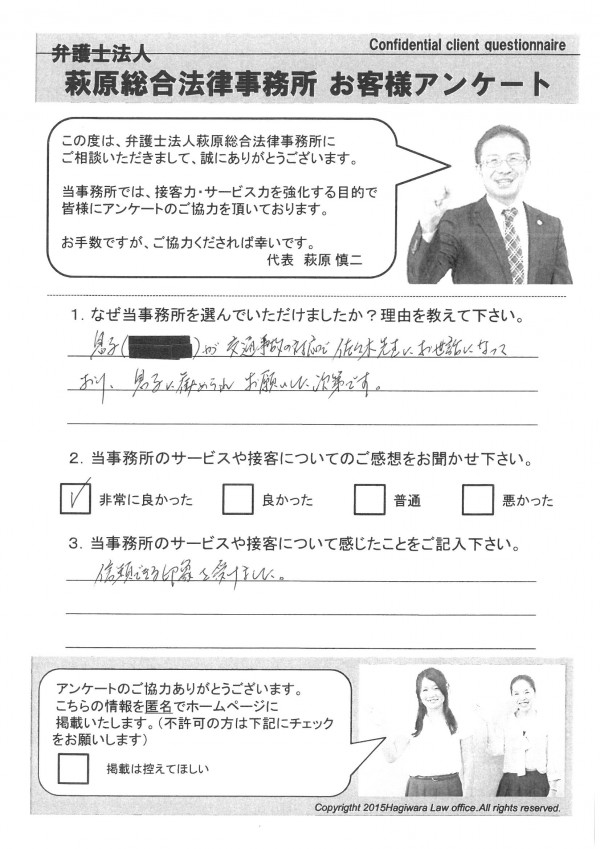 Confidential client questionnaire
弁護士法人
萩原総合法律事務所 お客様アンケート
この度は、弁護士法人萩原総合法律事務所に
ご相談いただきまして、誠にありがとうございます。
当事務所では、接客力・サービス力を強化する目的で
皆様にアンケートのご協力を頂いております。
お手数ですが、ご協力くだされば幸いです。
代表 萩原 慎二
1. なぜ当事務所を選んでいただけましたか?理由を教えて下さい。
息子( )が交通事故の対応で佐々木先生にお世話になって
おり、息子に勧められお願いした次第です。
2. 当事務所のサービスや接客についてのご感想をお聞かせ下さい。
非常に良かった 良かった 普通 悪かった
3. 当事務所のサービスや接客について感じたことをご記入下さい。
信頼できる印象を受けました。
アンケートのご協力ありがとうございます。
こちらの情報を匿名でホームページに
掲載いたします。(不許可の方は下記にチェック
をお願いします)
掲載は控えてほしい
Copyrigtht 2015Hagiwara Law office.All rights reserved.